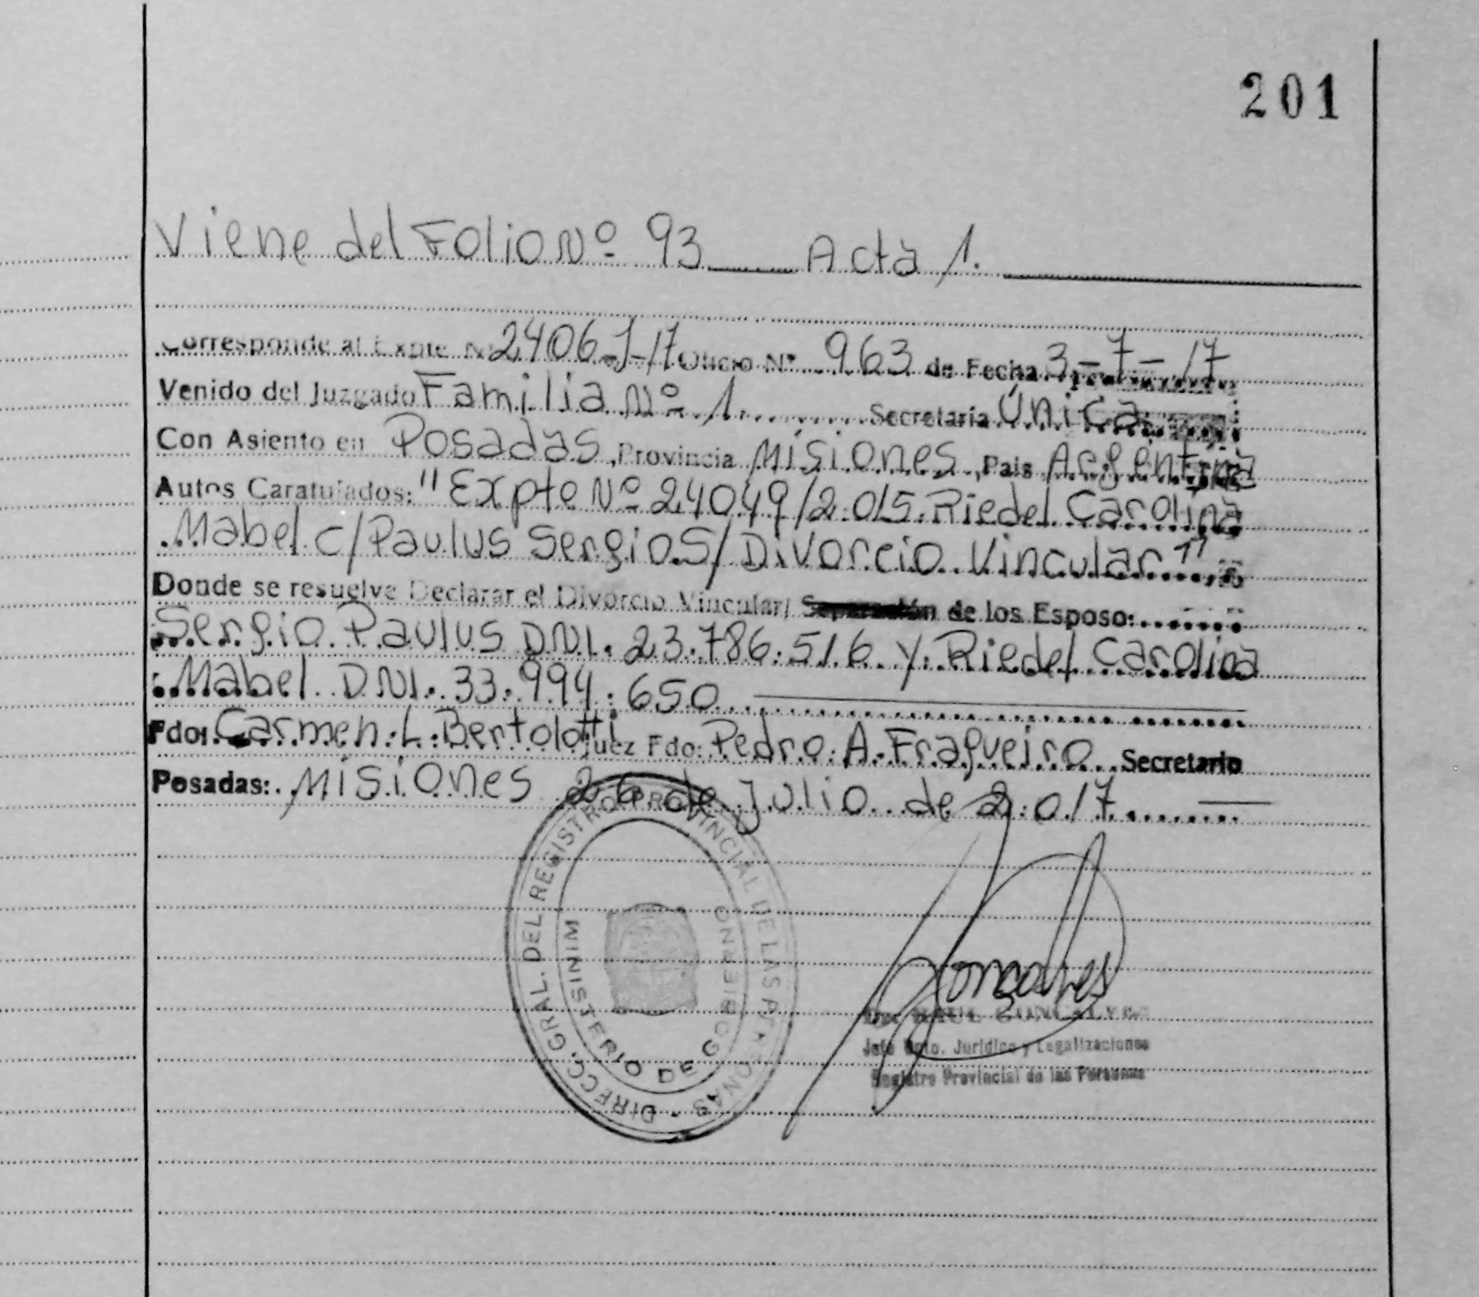 201
Viene del Folio Nº 93 Acta 1.
Corresponde al Expte Nº 2406-J-17 Oficio Nº 963 de Fecha 3-7-17
Venido del Juzgado Familia Nº 1 Secretaria Única
Con Asiento en Posadas, Provincia Misiones, Pais Argentina
Autos Caratulados: "Expte Nº 24049/2015 Riedel Carolina
Mabel c/ Paulus Sergio S/ Divorcio Vincular"
Donde se resuelve Declarar el Divorcio Vincular/ Separación de los Esposo:
Sergio Paulus DNI. 23.786.516 y Riedel Carolina
Mabel DNI. 33.994.650
Fdo: Carmen L. Bertolotti Juez Fdo: Pedro A. Fragueiro Secretario
Posadas: Misiones 26 de Julio de 2017
DIRECC. GRAL. DEL REGISTRO PROVINCIAL DE LAS PERSONAS
MINISTERIO DE GOBIERNO
RAUL
Jefe Dpto. Jurídico y Legalizaciones
Registro Provincial de las Personas